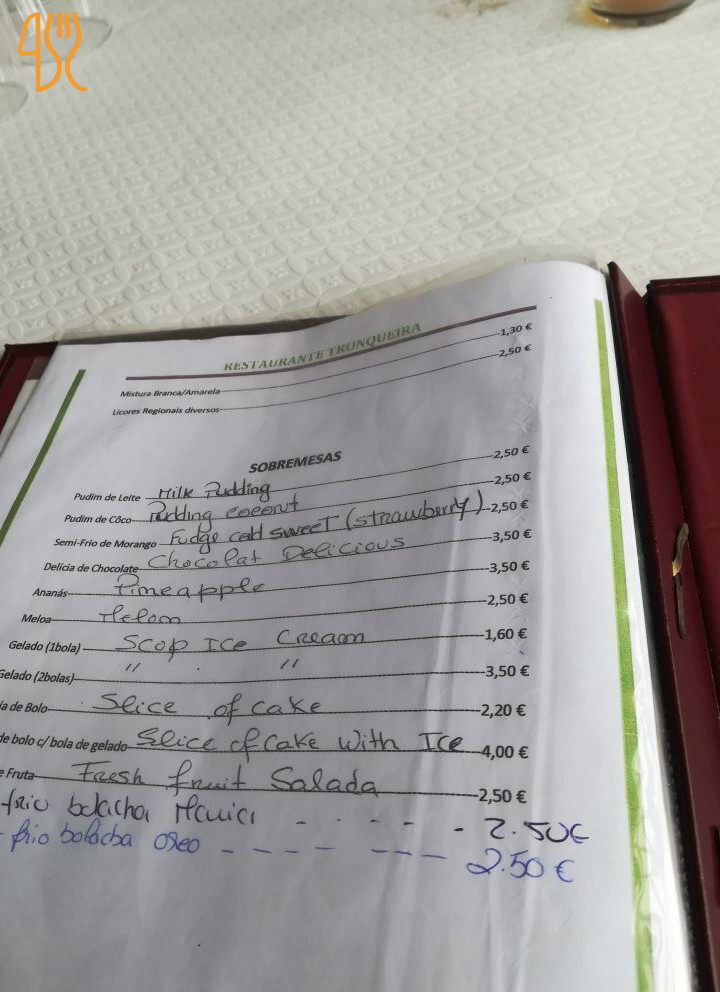 RESTAURANTE TRONQUEIRA
Mistura Branca/Amarela 1,30 €
Licores Regionais diversos 2,50 €
SOBREMESAS
Pudim de Leite Milk Pudding 2,50 €
Pudim de Côco Pudding coconut 2,50 €
Semi-Frio de Morango Fudge cold sweet (strawberry) 2,50 €
Delícia de Chocolate Chocolat Delicious 3,50 €
Ananás Pimeapple 3,50 €
Meloa Melom 2,50 €
Gelado (1bola) Scop Ice Cream 1,60 €
Gelado (2bolas) " " 3,50 €
ia de Bolo Slice of cake 2,20 €
de bolo c/ bola de gelado Slice of cake with Ice 4,00 €
e Fruta Fresh fruit Salada 2,50 €
frio bolacha 2.50€
frio bolacha oreo 2.50 €